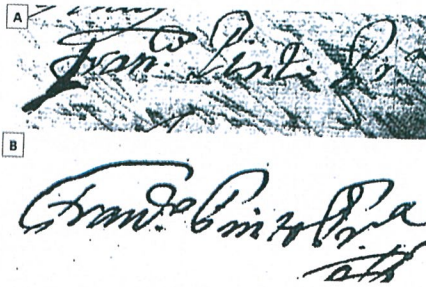 A
Fran.co Pinto Pra
B
Franco Pinto Pra